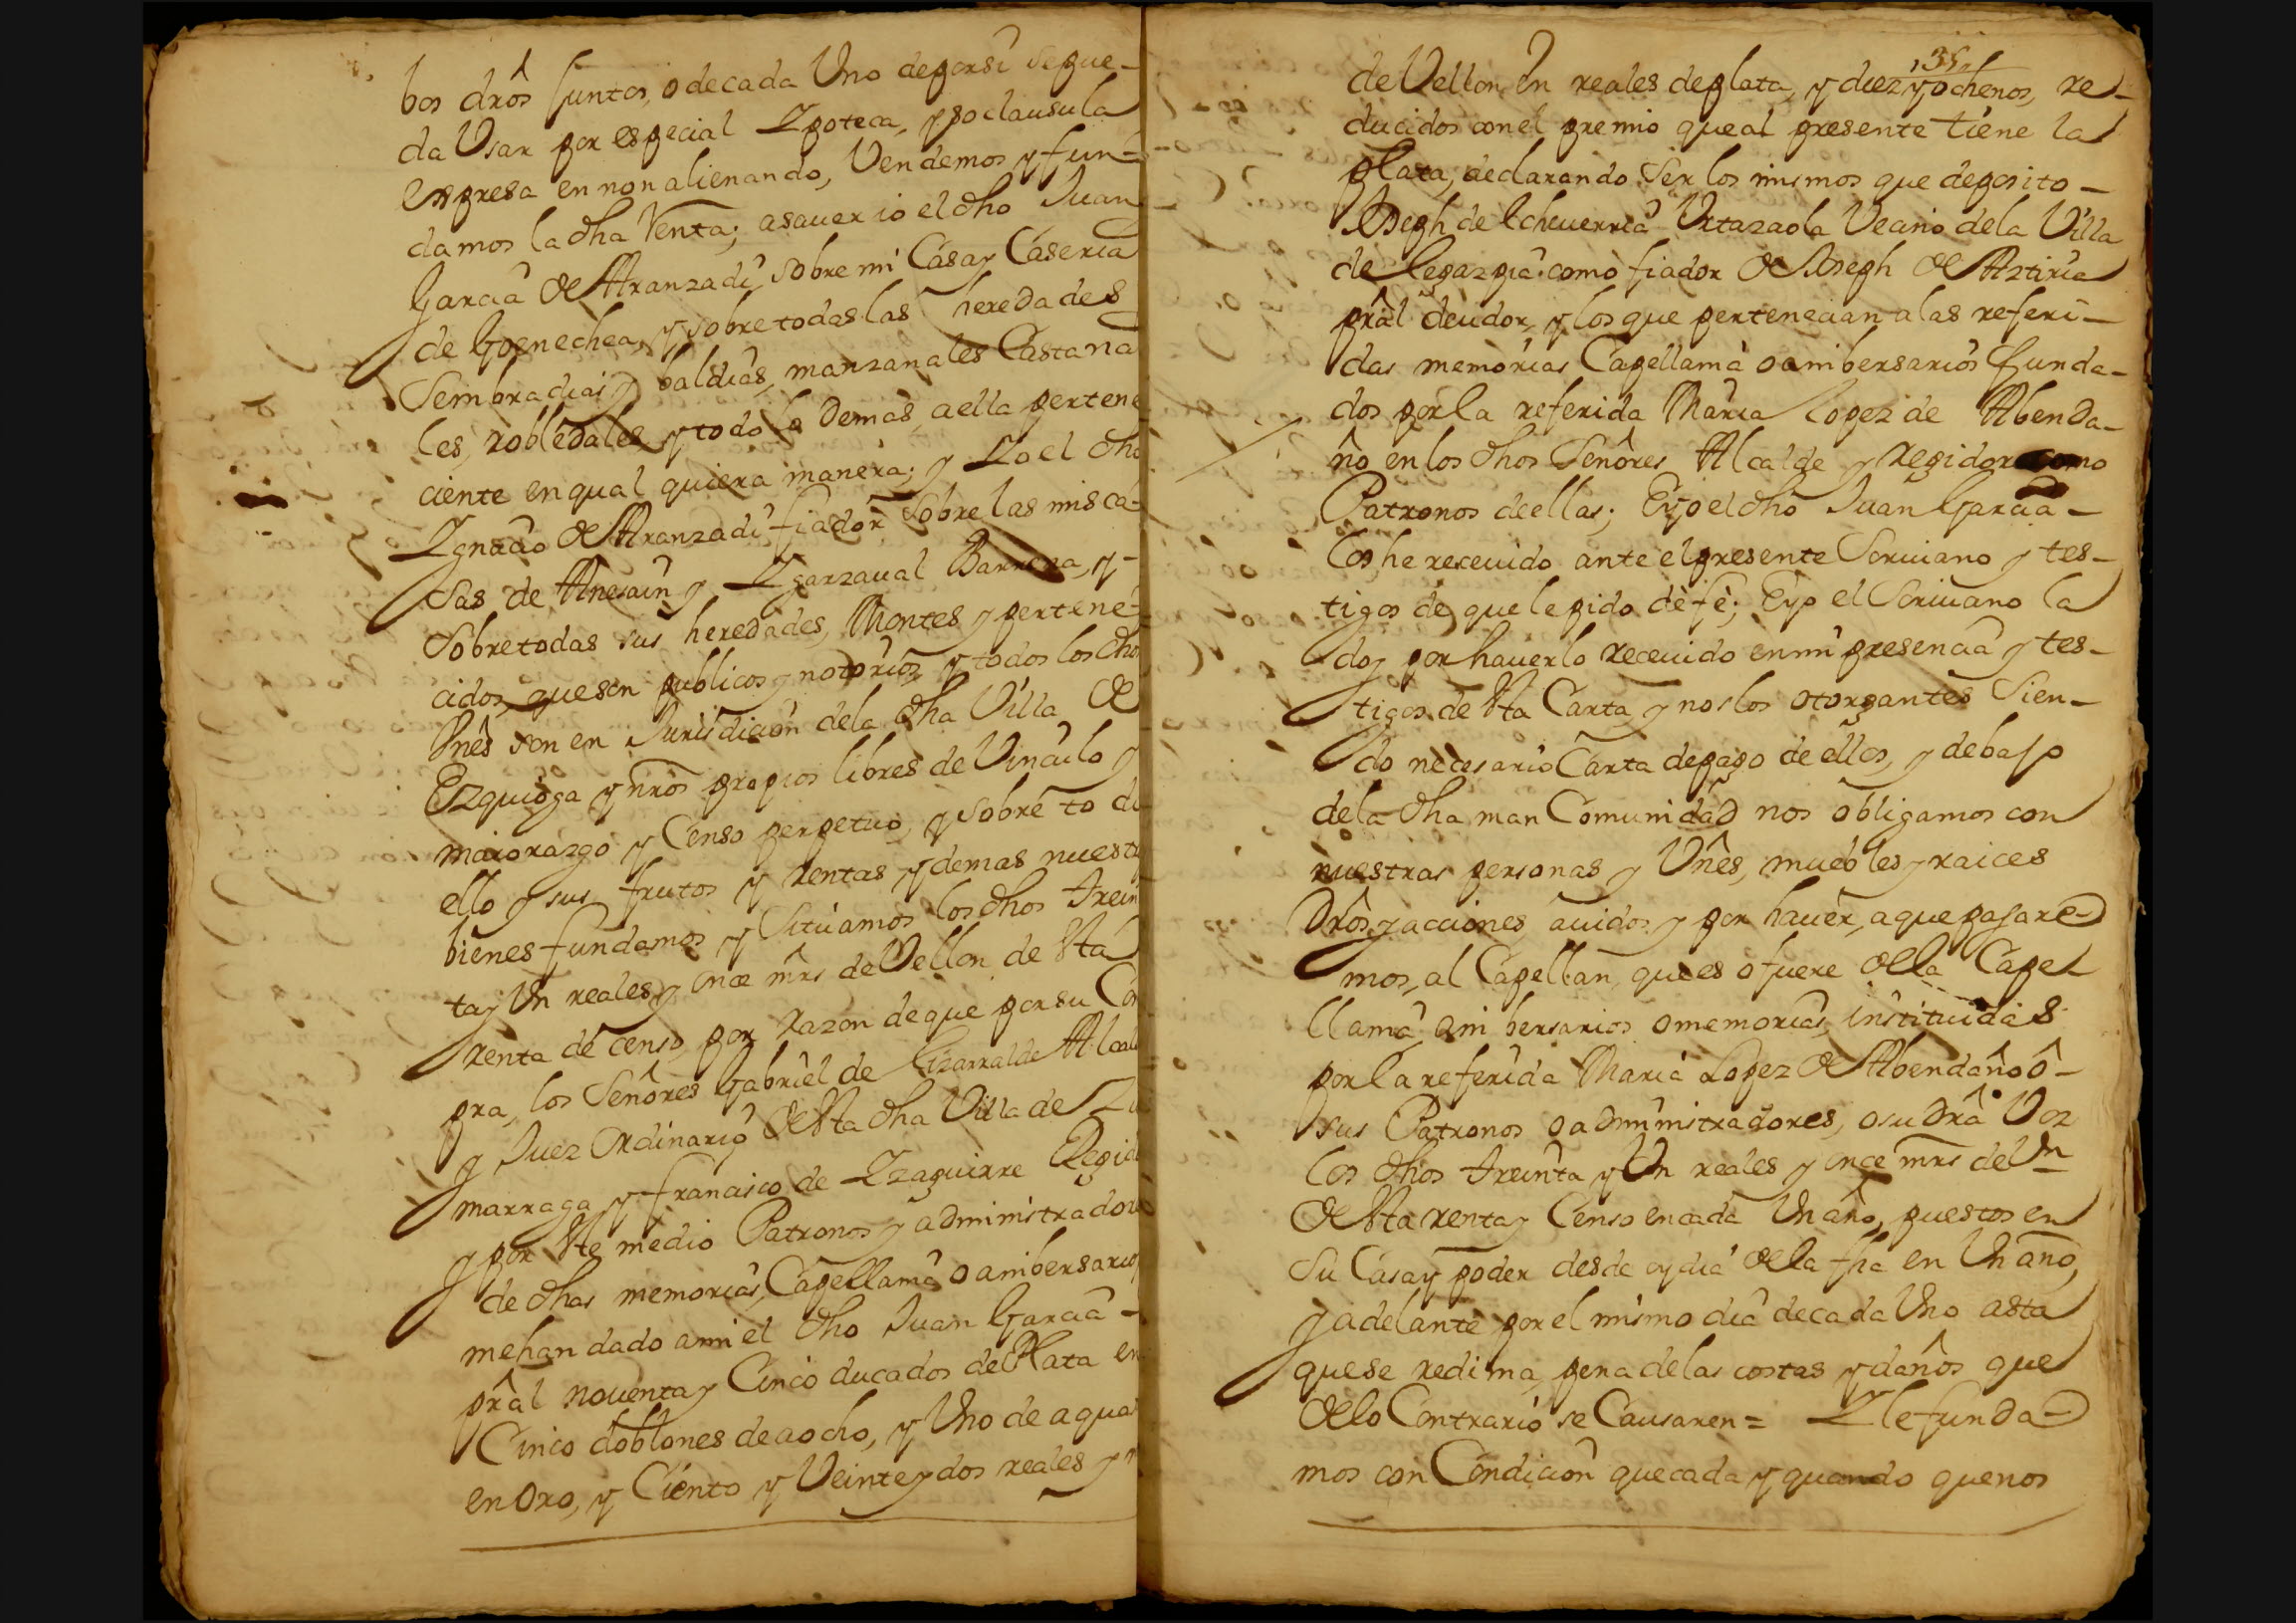 bos drôs juntos, o decada Uno deporsi sepue-
da Usar por especial Ypoteca, y so clausula
espresa en non alienando, Vendemos y fun-
damos la dha Venta; asauer io el dho Juan
Garcia de Aranzadi, sobre mi Casa y Caseria
de Goenechea, y sobre todas las heredades
Sembradias y baldias, manzanales Castana
les, robledales, y todo lo Demas, aella pertene
ciente en qual quiera manera; y Yo el dho
Ygnacio de Aranzadi fiador Sobre las mis ca-
sas de Anesain y Ygarzaual Barrena, y-
Sobre todas sus heredades, Montes y pertene-
cidos, que son publicos y notorios, y todos los dhos
Vnês son en Jurisdicion dela dha Villa de
Ezquioga y nrôs propios libres de Vinculo y
maiorazgo y Censo perpetuo, y sobre to do
ello y sus frutos y rentas y demas nuestr
bienes fundamos y Situamos los dhos trein
ta y Un reales y once mrs de Vellon de Sta
renta de censo, por razon de que por su Con
pra, los Señores Gabriel de Lizarralde Alcald
y Juez Ordinario de Sta dha Villa de Zu
marraga y francisco de Yzaguirre Regid
y por Ste medio Patronos y administrador
de dhas memorias, Capellania o anibersarios
mehan dado ami el dho Juan Garcia -
prâl nouenta y Cinco ducados de Plata en
Cinco doblones de aocho, y Uno de aquat
en Oro, y Ciento y Veinte y dos reales y m
135
de Vellon en reales de plata, y diez y ochenos, re-
ducidos con el premio que al presente tiene la
plata, declarando Ser los mismos que deposito -
Joseph de Echeuerria Urtazaola Vecino dela Villa
de legazpia como fiador de Joseph de Aztiria
prâl deudor, y los que pertenecian a las referi-
das memorias Capellania o anibersarios funda-
dos por la referida Maria Lopez de Abenda-
ño en los dhos Señores Alcalde y Regidor como
Patronos de ellas; E yo el dho Juan Garcia -
los he receuido ante el presente Scriuano y tes-
tigos de que le pido de fe; E yo el Scriuano la
doy por hauerlo receuido en mi presencia y tes-
tigos de Sta Carta y nos los otorgantes Sien-
do necesario Carta de pago de ellos, y debajo
de la dha man Comunidad nos obligamos con
nuestras personas y Vnês, muebles y raices
Drôs y acciones, auidos y por hauer, a que pagare-
mos, al Capellan, que es o fuere de la Cape
llania, anibersarios o memorias, instituidas
por la referida Maria Lopez de Abendaño ô-
sus Patronos o administradores, o su Drâ Voz
los dhos treinta y Un reales y once mrs de Vn
de Sta renta y Censo en cada Un año, puestos en
su Casa y poder desde oy dia de la fha en Un año,
y adelante por el mismo dia de cada Uno asta
que se redima, pena de las costas y daños que
de lo Contrario se Causaren = Y le funda-
mos con Condicion que cada y quando que nos